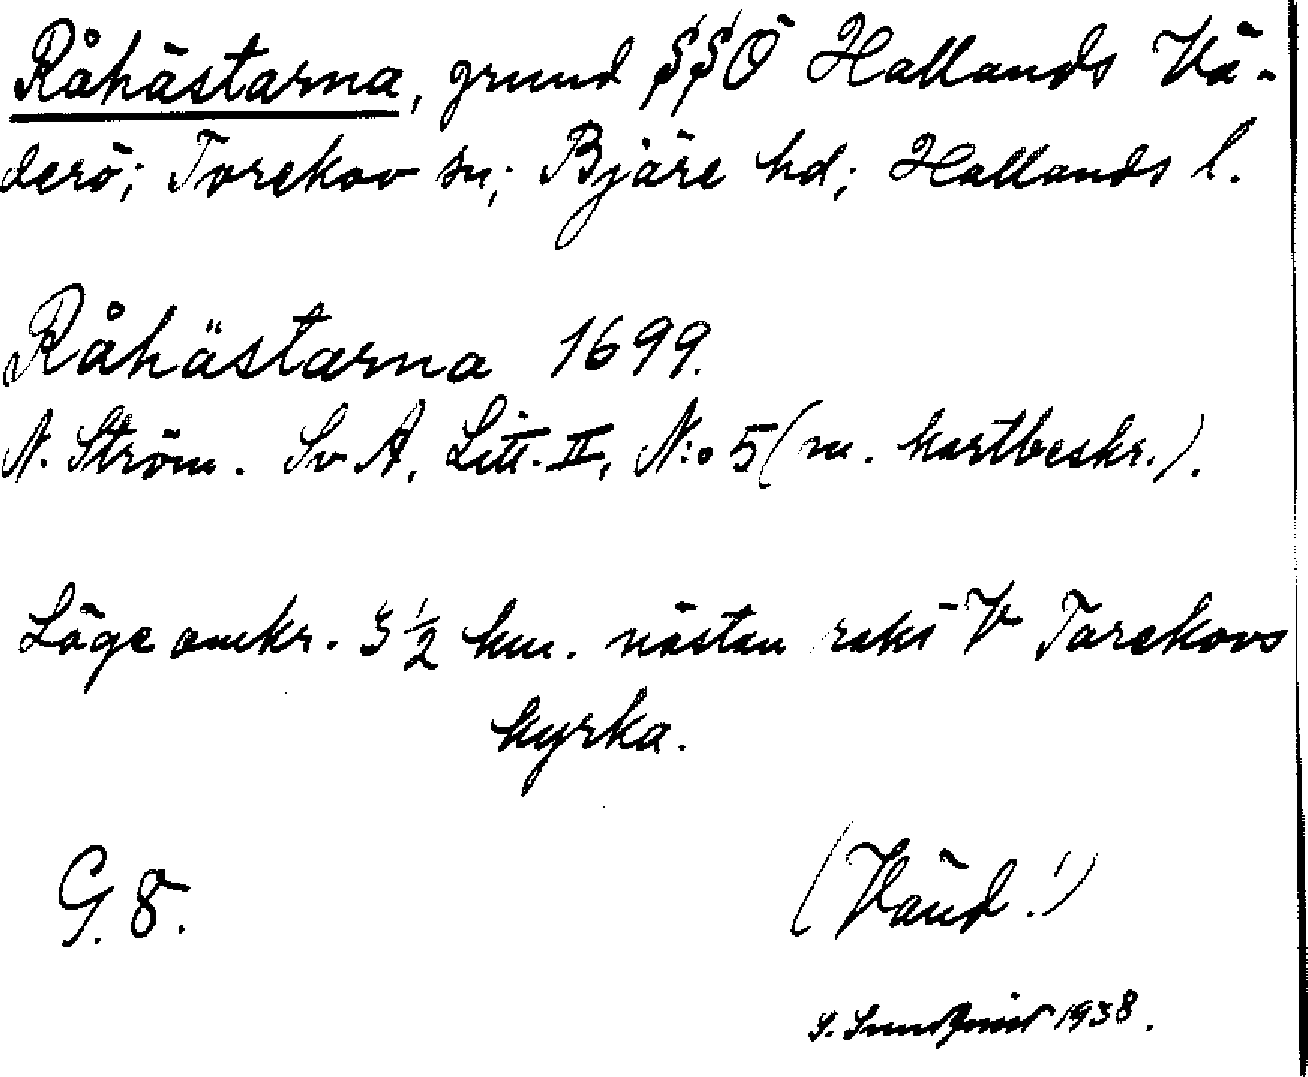 Råhästarna, grund SSÖ Hallands Vä-
derö; Torekov sn; Bjäre hd; Hallands l.
Råhästarna 1699.
N. Ström. Sv. A. Litt. II, N:o 5 (m. kartbeskr.).
Läge omkr. 3 1/2 km. nästan rakt V Torekovs
kyrka.
G. 8.
(Vänd!)
S. 1938.